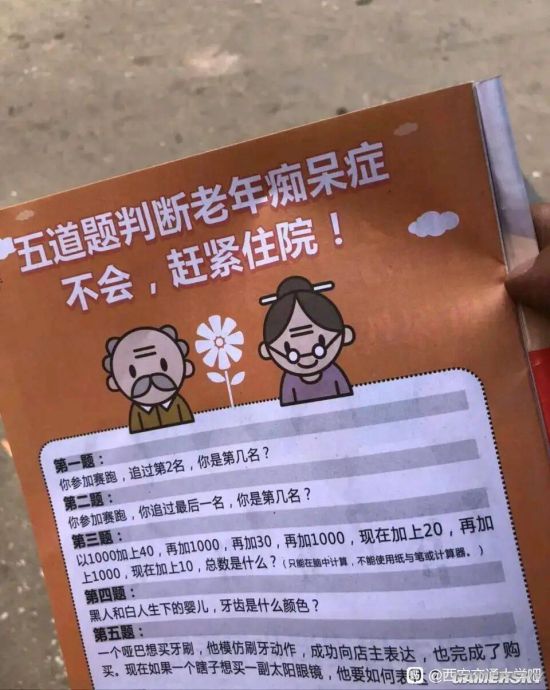 五道题判断老年痴呆症
不会，赶紧住院！
第一题：
你参加赛跑，追过第2名，你是第几名？
第二题：
你参加赛跑，你追过最后一名，你是第几名？
第三题：
以1000加上40，再加1000，再加30，再加1000，现在加上20，再加
上1000，现在加上10，总数是什么？（只能在脑中计算，不能使用纸与笔或计算器。）
第四题：
黑人和白人生下的婴儿，牙齿是什么颜色？
第五题：
一个哑巴想买牙刷，他模仿刷牙动作，成功向店主表达，也完成了购
买。现在如果一个瞎子想买一副太阳眼镜，他要如何表
@西安交通大学吧
GAMERSKY